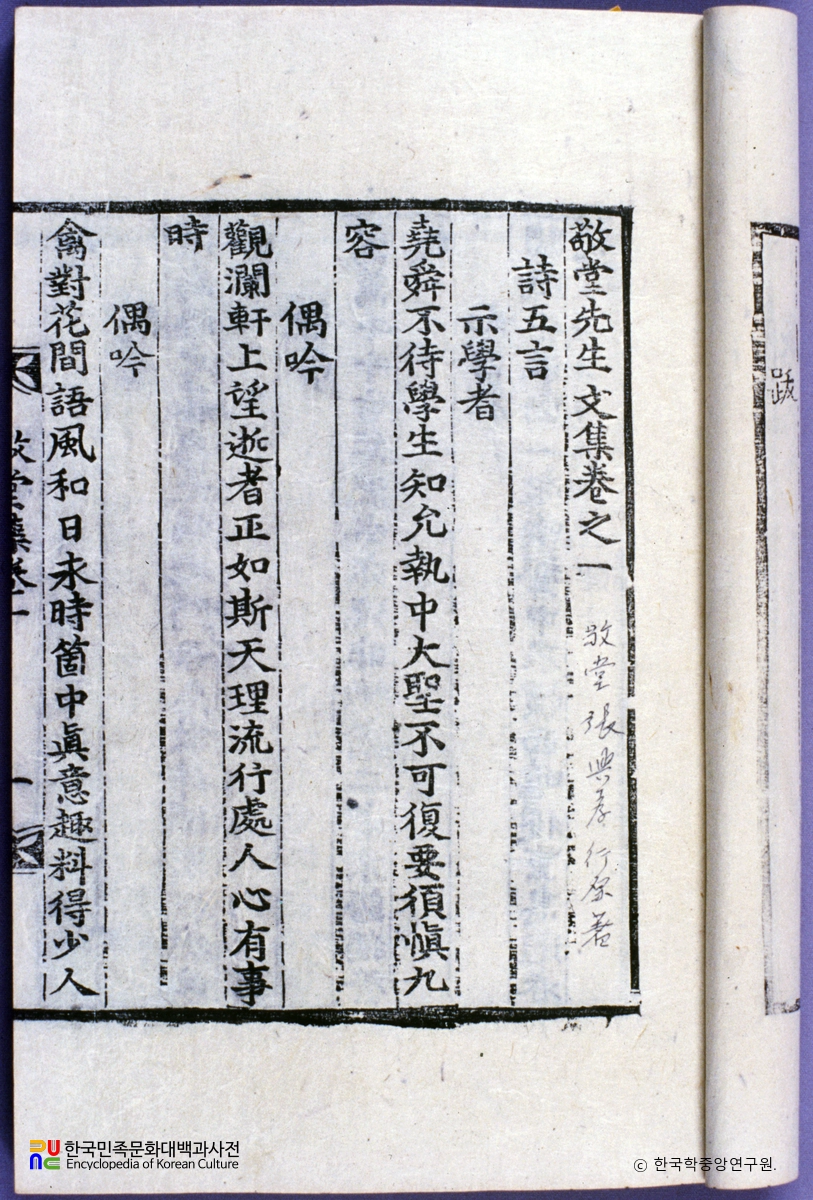 跋
敬堂先生文集卷之一
敬堂 張興孝 行原 著
詩五言
示學者
堯舜不待學生知允執中大聖不可復要須愼九
容
偶吟
觀瀾軒上望逝者正如斯天理流行處人心有事
時
偶吟
禽對花間語風和日未時箇中眞意趣料得少人
敬堂集卷一
一
한국민족문화대백과사전
Encyclopedia of Korean Culture
© 한국학중앙연구원.